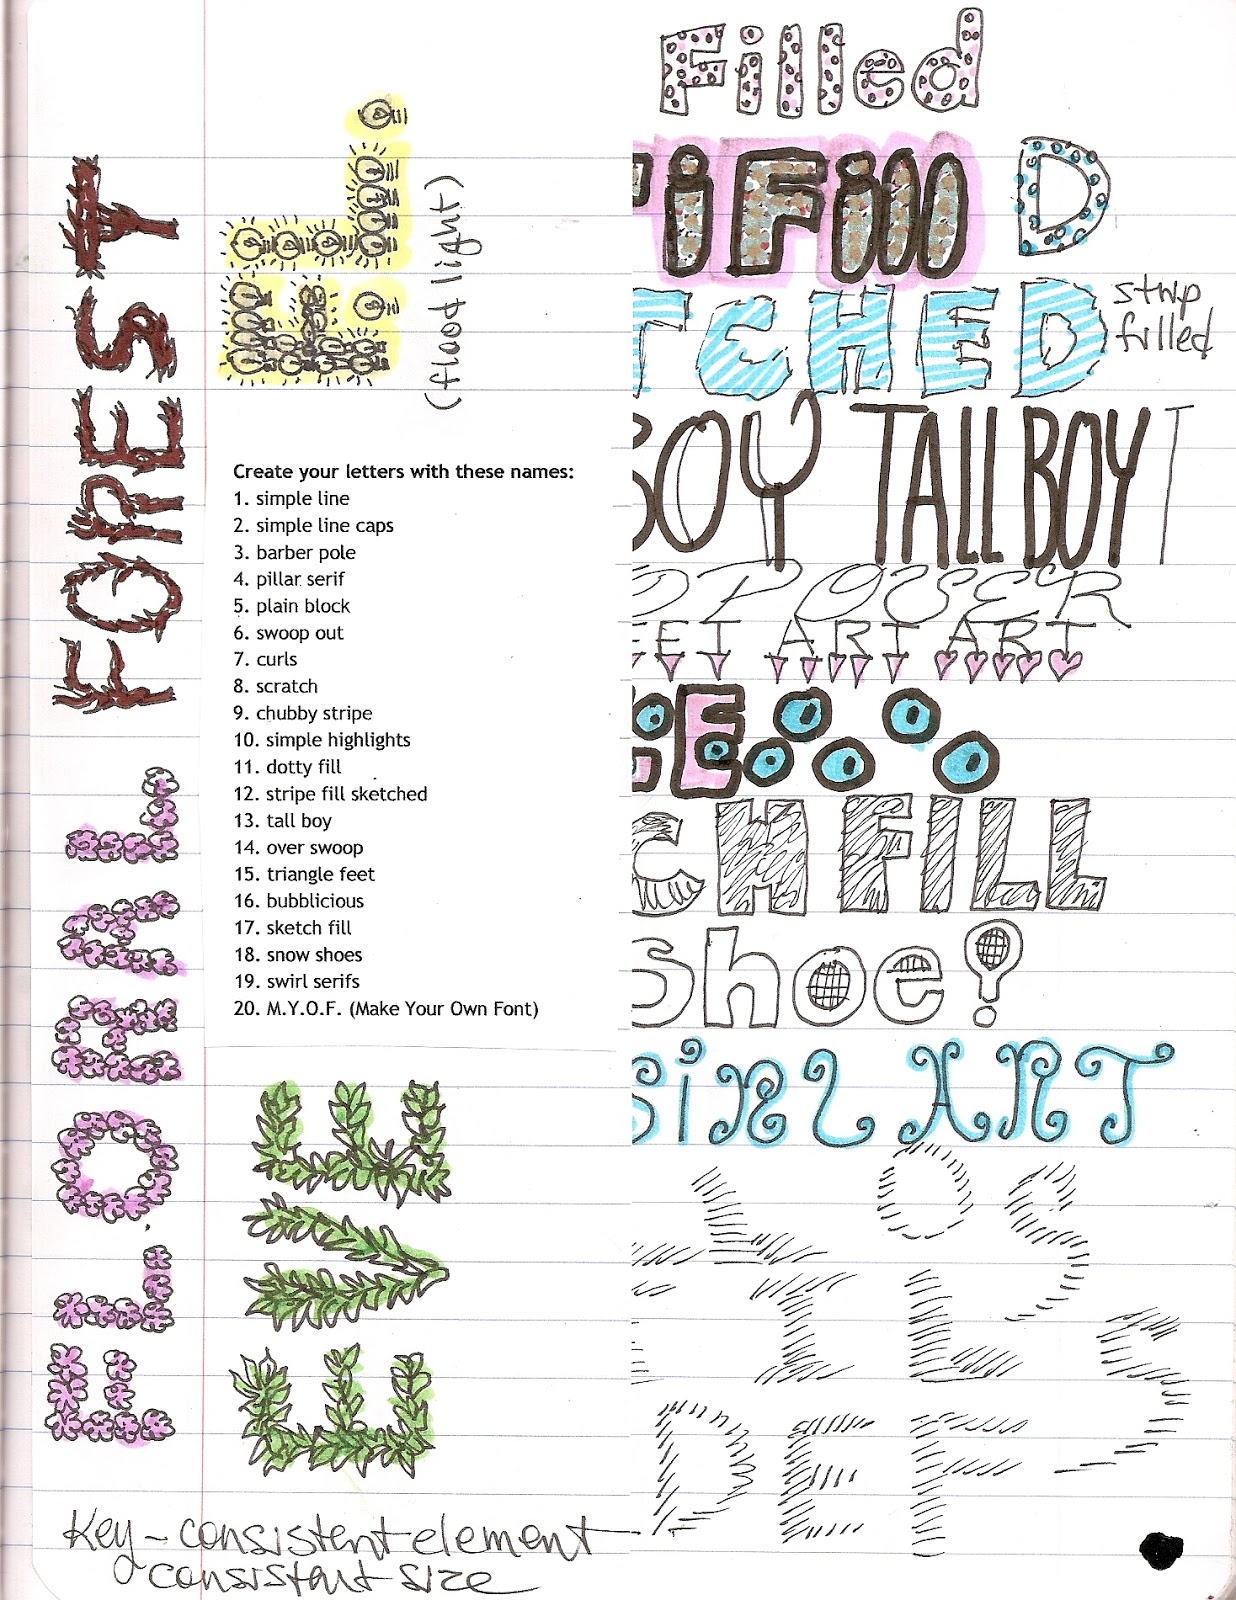 FOREST
FLORAL
(flood light)
Create your letters with these names:
1. simple line
2. simple line caps
3. barber pole
4. pillar serif
5. plain block
6. swoop out
7. curls
8. scratch
9. chubby stripe
10. simple highlights
11. dotty fill
12. stripe fill sketched
13. tall boy
14. over swoop
15. triangle feet
16. bubblicious
17. sketch fill
18. snow shoes
19. swirl serifs
20. M.Y.O.F. (Make Your Own Font)
EVE
Key - consistent element
consistant size
Filled
iFill D
TCHED strip
filled
BOY TALLBOY T
EET ART ART
E
CH FILL
Shoe!
ART